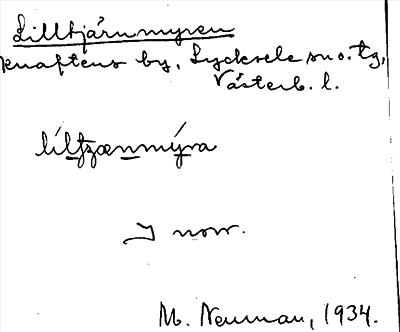 Lilltjärnmyren
Knaftens by, Lycksele sn o. tg,
Västerb. l.
líltjzænmýra
I now.
M. Neuman, 1934.